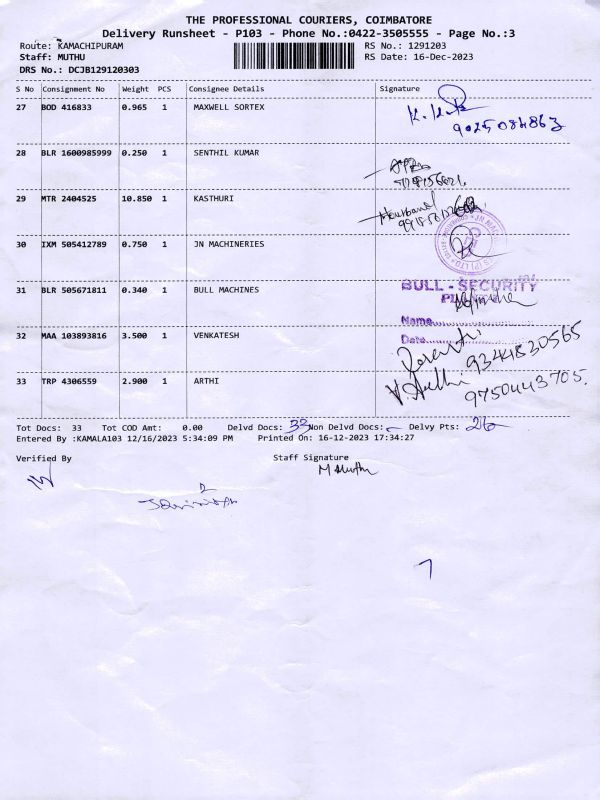 THE PROFESSIONAL COURIERS, COIMBATORE
Delivery Runsheet - P103 - Phone No.:0422-3505555 - Page No.:3
Route: KAMACHIPURAM RS No.: 1291203
Staff: MUTHU RS Date: 16-Dec-2023
DRS No.: DCJB129120303
S No Consignment No Weight PCS Consignee Details Signature
27 BOD 416833 0.965 1 MAXWELL SORTEX
9025084863
28 BLR 1600985999 0.250 1 SENTHIL KUMAR
29 MTR 2404525 10.850 1 KASTHURI
Housband
30 IXM 505412789 0.750 1 JN MACHINERIES
31 BLR 505671811 0.340 1 BULL MACHINES
BULL - SECURITY
Name
Date
32 MAA 103893816 3.500 1 VENKATESH
9344820565
33 TRP 4306559 2.900 1 ARTHI
V. Arthi 9750443705.
Tot Docs: 33 Tot COD Amt: 0.00 Delvd Docs: 33 Non Delvd Docs: - Delvy Pts: 26
Entered By :KAMALA103 12/16/2023 5:34:09 PM Printed On: 16-12-2023 17:34:27
Verified By Staff Signature
M Muthu
7